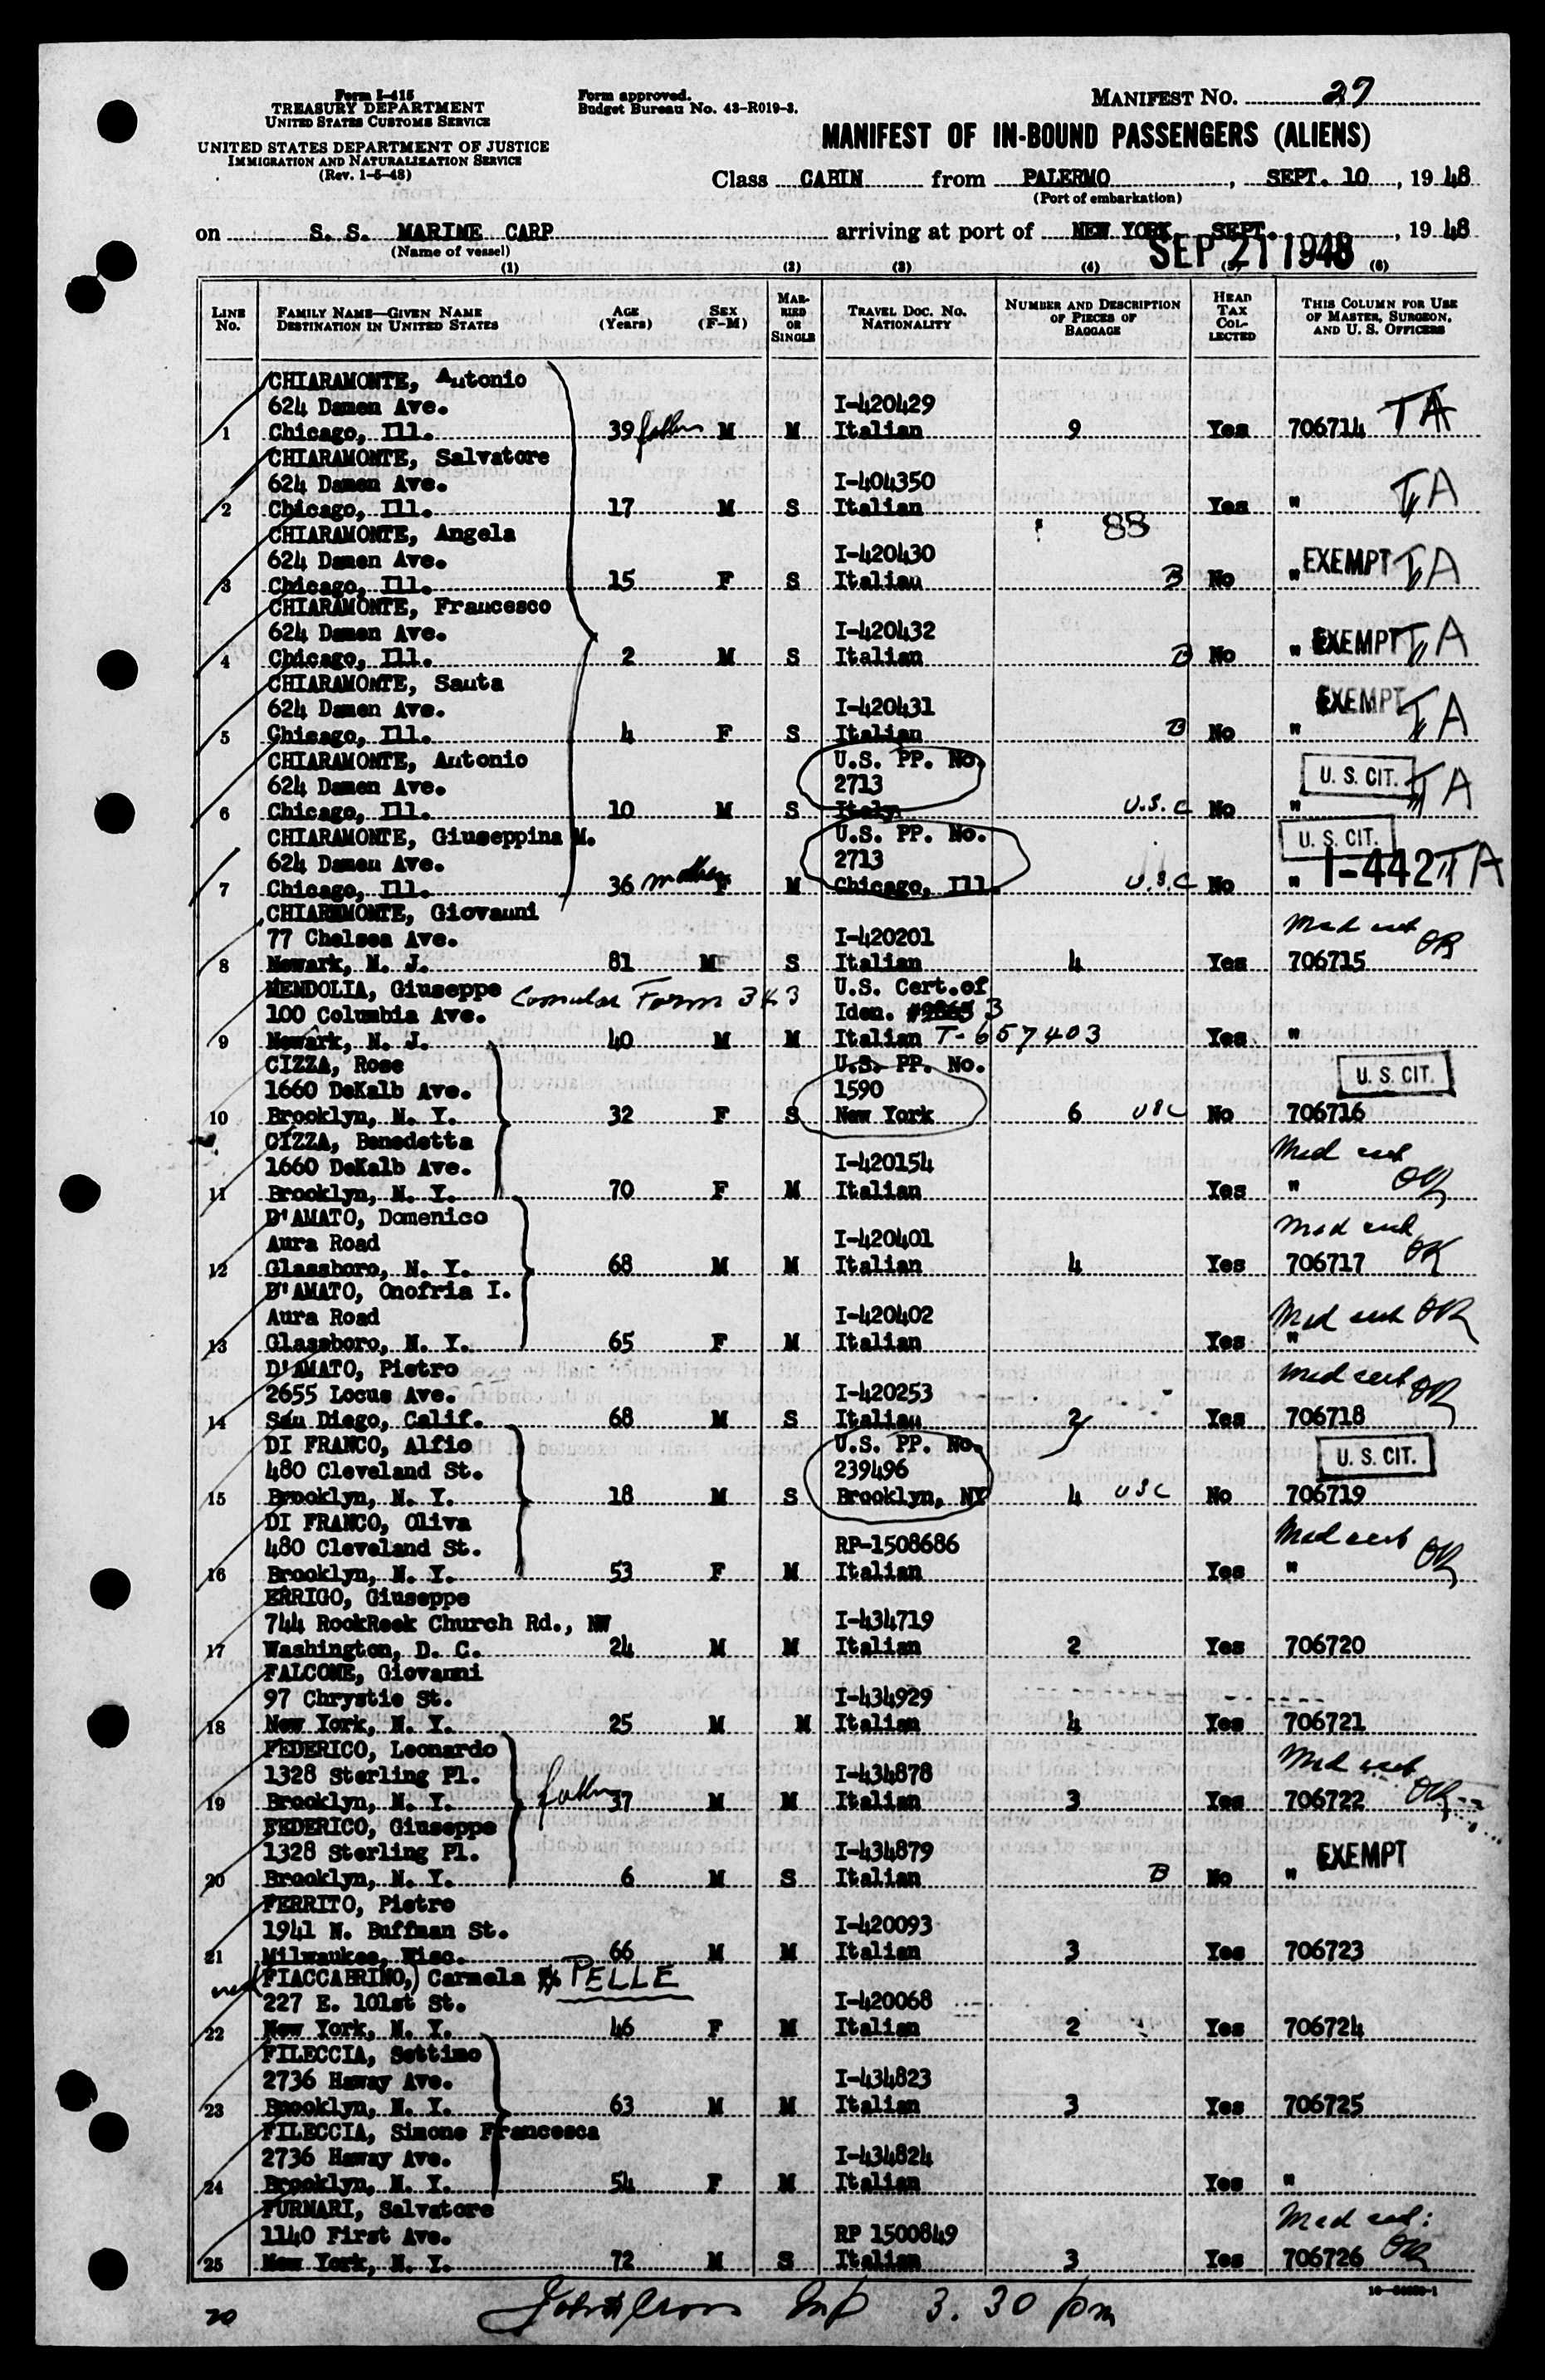 Form I-415
TREASURY DEPARTMENT
UNITED STATES CUSTOMS SERVICE
UNITED STATES DEPARTMENT OF JUSTICE
IMMIGRATION AND NATURALIZATION SERVICE
(Rev. 1-5-48)
Form approved.
Budget Bureau No. 43-R019-3.
MANIFEST NO. 27
MANIFEST OF IN-BOUND PASSENGERS (ALIENS)
Class CABIN from PALERMO, SEPT. 10, 1948
(Port of embarkation)
on S. S. MARINE CARP arriving at port of NEW YORK SEPT. , 1948
(Name of vessel)
SEP 21 1948
(1) (2) (3) (4) (5) (6)
LINE No. FAMILY NAME—GIVEN NAME DESTINATION IN UNITED STATES AGE (Years) SEX (F-M) MAR-RIED OR SINGLE TRAVEL DOC. NO. NATIONALITY NUMBER AND DESCRIPTION OF PIECES OF BAGGAGE HEAD TAX COL-LECTED THIS COLUMN FOR USE OF MASTER, SURGEON, AND U. S. OFFICERS
CHIARAMONTE, Antonio
624 Damen Ave. I-420429
1 Chicago, Ill. 39 father M M Italian 9 Yes 706714 TA
CHIARAMONTE, Salvatore
624 Damen Ave. I-404350
2 Chicago, Ill. 17 M S Italian Yes " TA
88
CHIARAMONTE, Angela
624 Damen Ave. I-420430
3 Chicago, Ill. 15 F S Italian B No " EXEMPT TA
CHIARAMONTE, Francesco
624 Damen Ave. I-420432
4 Chicago, Ill. 2 M S Italian B No " EXEMPT TA
CHIARAMONTE, Santa
624 Damen Ave. I-420431
5 Chicago, Ill. 4 F S Italian B No " EXEMPT TA
CHIARAMONTE, Antonio U.S. PP. No.
624 Damen Ave. 2713
6 Chicago, Ill. 10 M S Italy U.S.C No " U. S. CIT. TA
CHIARAMONTE, Giuseppina M. U.S. PP. No.
624 Damen Ave. 2713
7 Chicago, Ill. 36 mother F M Chicago, Ill. U.S.C No " U. S. CIT. I-442 TA
CHIAREMONTE, Giovanni
77 Chelsea Ave. I-420201 Med cert
8 Newark, N. J. 81 M S Italian 4 Yes 706715 OK
MENDOLIA, Giuseppe Consular Form 343 U.S. Cert.of
100 Columbia Ave. Iden. #9865 3
9 Newark, N. J. 40 M M Italian T-657403 Yes "
CIZZA, Rose U.S. PP. No.
1660 DeKalb Ave. 1590 U. S. CIT.
10 Brooklyn, N. Y. 32 F S New York 6 USC No 706716
CIZZA, Benedetta
1660 DeKalb Ave. I-420154 Med cert
11 Brooklyn, N. Y. 70 F M Italian Yes " OK
D'AMATO, Domenico
Aura Road I-420401 Med cert
12 Glassboro, N. Y. 68 M M Italian 4 Yes 706717 OK
D'AMATO, Onofria I.
Aura Road I-420402 Med cert OK
13 Glassboro, N. Y. 65 F M Italian Yes "
D'AMATO, Pietro
2655 Locus Ave. I-420253 Med cert OK
14 San Diego, Calif. 68 M S Italian 2 Yes 706718
DI FRANCO, Alfio U.S. PP. No.
480 Cleveland St. 239496 U. S. CIT.
15 Brooklyn, N. Y. 18 M S Brooklyn, NY 4 USC No 706719
DI FRANCO, Oliva
480 Cleveland St. RP-1508686 Med cert
16 Brooklyn, N. Y. 53 F M Italian Yes " OK
ERRIGO, Giuseppe
744 RookReek Church Rd., NW I-434719
17 Washington, D. C. 24 M M Italian 2 Yes 706720
FALCONE, Giovanni
97 Chrystie St. I-434929
18 New York, N. Y. 25 M M Italian 4 Yes 706721
FEDERICO, Leonardo
1328 Sterling Pl. I-434878 Med cert
19 Brooklyn, N. Y. father 37 M M Italian 3 Yes 706722 OK
FEDERICO, Giuseppe
1328 Sterling Pl. I-434879
20 Brooklyn, N. Y. 6 M S Italian B No " EXEMPT
FERRITO, Pietro
1941 N. Buffman St. I-420093
21 Milwaukee, Wisc. 66 M M Italian 3 Yes 706723
(FIACCABRINO,) Carmela PELLE
227 E. 101st St. I-420068
22 New York, N. Y. 46 F M Italian 2 Yes 706724
FILECCIA, Settimo
2736 Haway Ave. I-434823
23 Brooklyn, N. Y. 63 M M Italian 3 Yes 706725
FILECCIA, Simone Francesca
2736 Haway Ave. I-434824
24 Brooklyn, N. Y. 54 F M Italian Yes "
FURNARI, Salvatore
1140 First Ave. RP 1500849 Med cert:
25 New York, N. Y. 72 M S Italian 3 Yes 706726 OK
20 Insp 3.30 pm